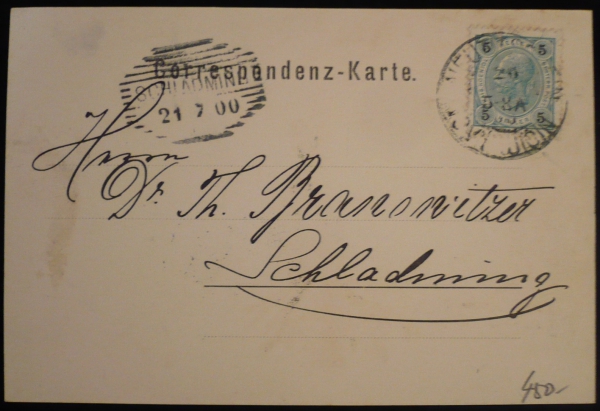 Correspondenz-Karte.
SCHLADMING
21 7 00
5 5
20
5 5
Herrn
Dr. Th. Branowitzer
Schladming
450-